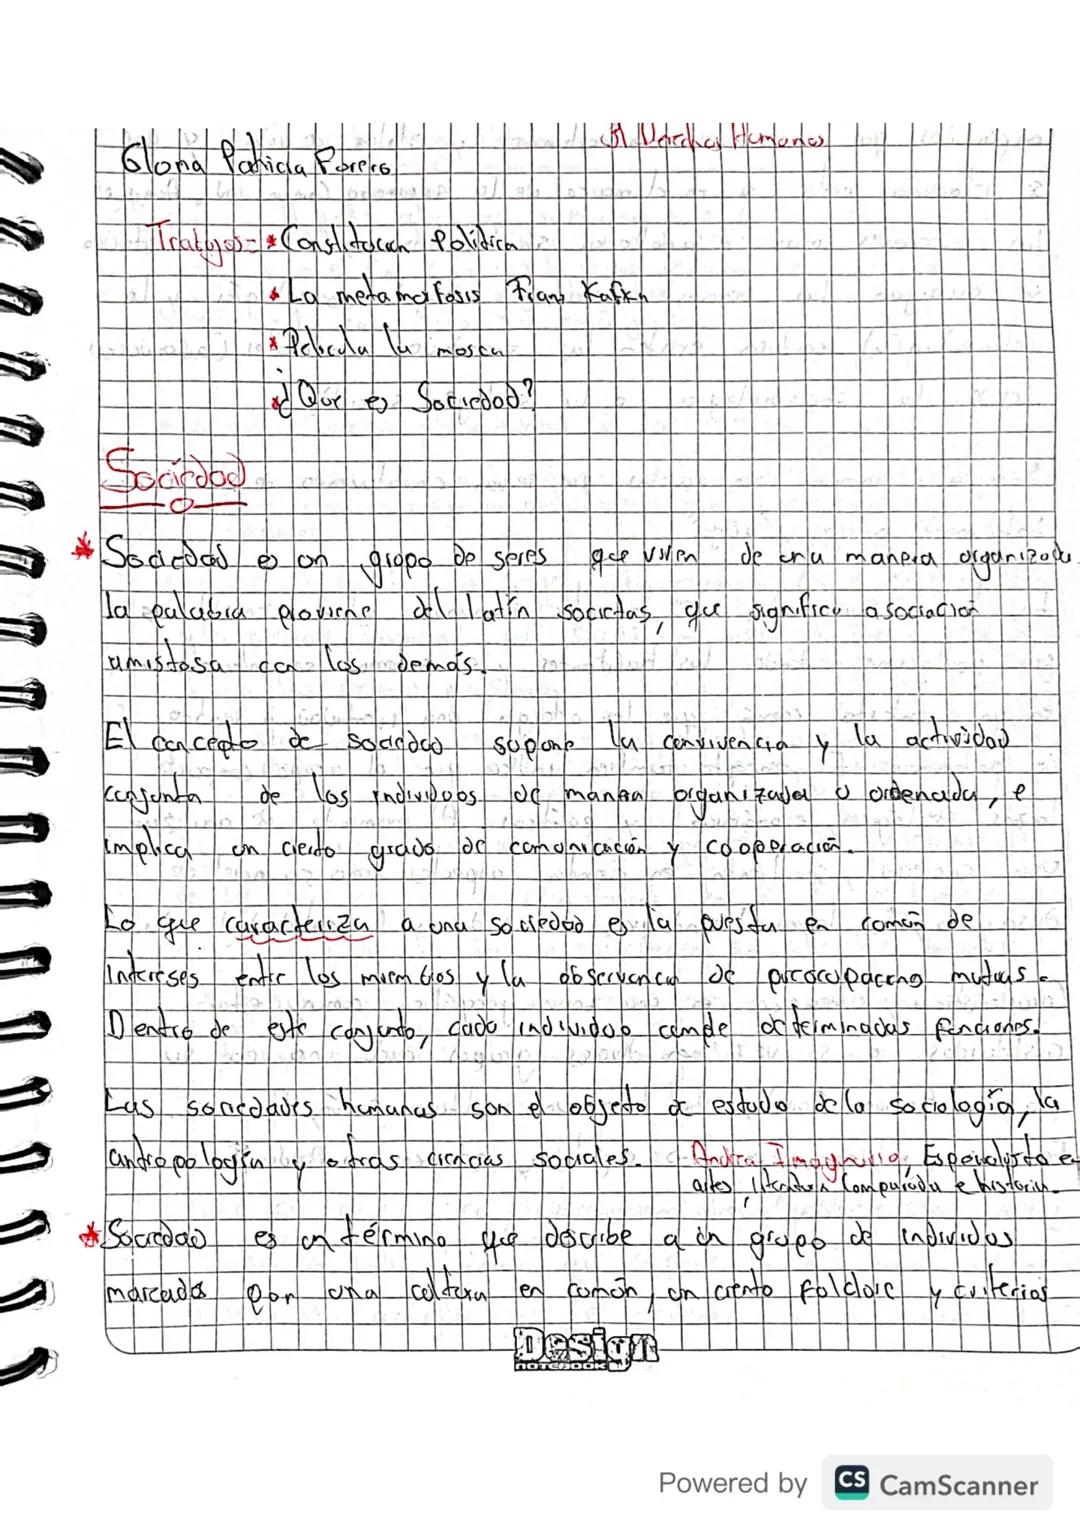 Derechos Humanos
Gloria Patricia Porero
Trabajos= * Constitucion Politica
* La metamorfosis Franz Kafka
* Pelicula la mosca
* ¿Que es Sociedad?
Sociedad
* Sociedad es un grupo de seres que viven de una manera organizada
la palabra proviene del latín societas, que significa asociación
amistosa con los demás.
El concepto de sociedad supone la convivencia y la actividad
conjunta de los individuos de manera organizada u ordenada, e
implica un cierto grado de comunicación y cooperación.
Lo que caracteriza a una sociedad es la puesta en común de
intereses entre los miembros y la observancia de preocupaciones mutuas.
Dentro de este conjunto, cada individuo cumple determinadas funciones.
Las sociedades humanas son el objeto de estudio de la sociología, la
antropología y otras ciencias sociales. Andrea Imaginario, Especialista en
artes, literatura Comparada e historia.
* Sociedad es un término que describe a un grupo de individuos
marcados por una cultura en común, un cierto folclore y criterios
Design
NOTEBOOK
Powered by CS CamScanner